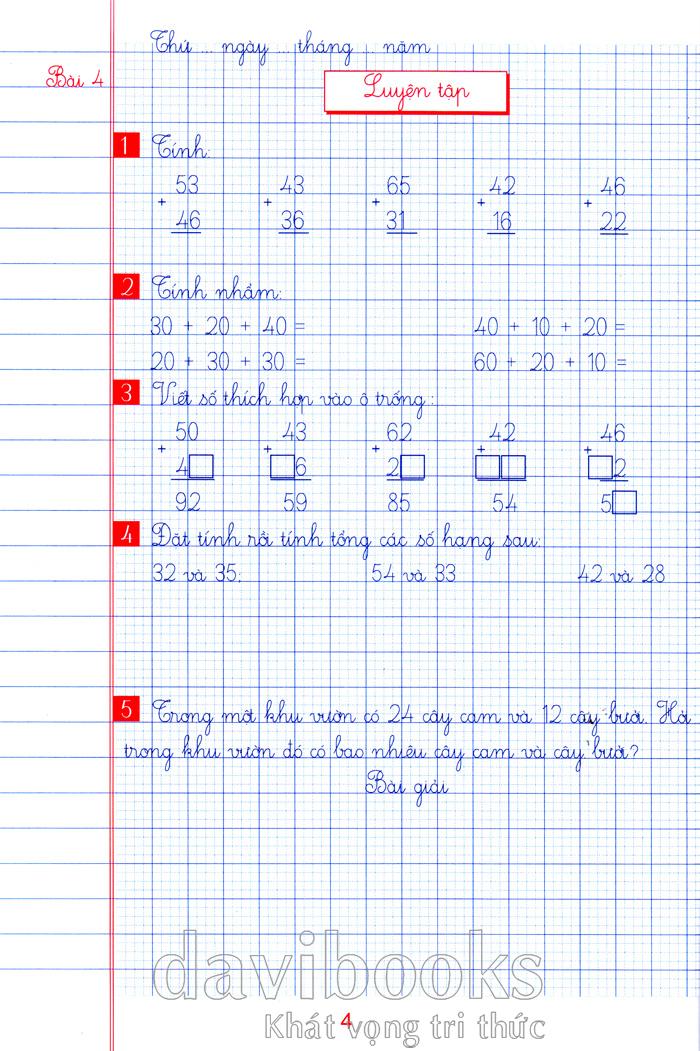 Thứ ... ngày ... tháng ... năm
Bài 4
Luyện tập
1 Tính:
53 43 65 42 46
+ + + + +
46 36 31 16 22
2 Tính nhẩm:
30 + 20 + 40 = 40 + 10 + 20 =
20 + 30 + 30 = 60 + 20 + 10 =
3 Viết số thích hợp vào ô trống:
50 43 62 42 46
+ + + + +
4□ □6 2□ □□ □2
92 59 85 54 5□
4 Đặt tính rồi tính tổng các số hạng sau:
32 và 35; 54 và 33 42 và 28
5 Trong một khu vườn có 24 cây cam và 12 cây bưởi. Hỏi
trong khu vườn đó có bao nhiêu cây cam và cây bưởi?
Bài giải
davibooks
Khát vọng tri thức
4